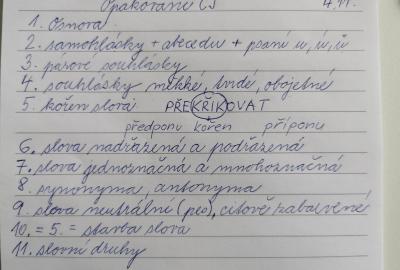 Opakování ČJ 4. 11.
1. Osnova
2. samohlásky + abecedu + psaní u, ú, ů
3. párové souhlásky
4. souhlásky měkké, tvrdé, obojetné
5. kořen slova PŘEKŘIKOVAT
předponu kořen příponu
6. slova nadřazená a podřazená
7. slova jednoznačná a mnohoznačná
8. synonyma, antonyma
9. slova neutrální (pes), citově zabarvené
10. = 5. = stavba slova
11. slovní druhy